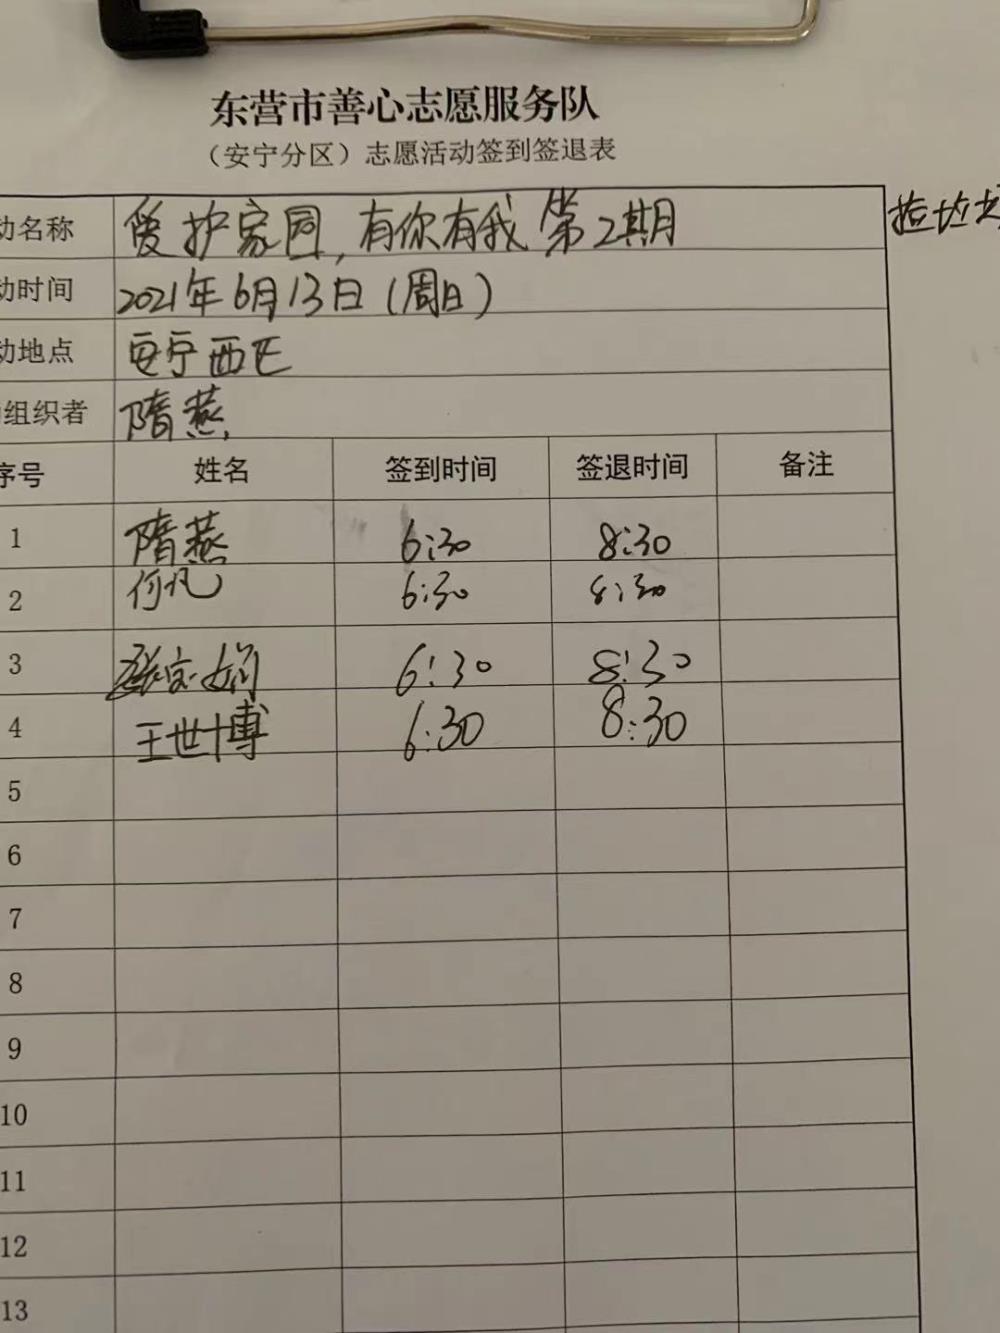 东营市善心志愿服务队
（安宁分区）志愿活动签到签退表
动名称 爱护家园,有你有我 第2期 捡垃圾
动时间 2021年6月13日(周日)
动地点 安宁西区
组织者 隋燕
序号 姓名 签到时间 签退时间 备注
1 隋燕 6:30 8:30
2 何凡 6:30 8:30
3 张宝娟 6:30 8:30
4 王世博 6:30 8:30
5
6
7
8
9
10
11
12
13